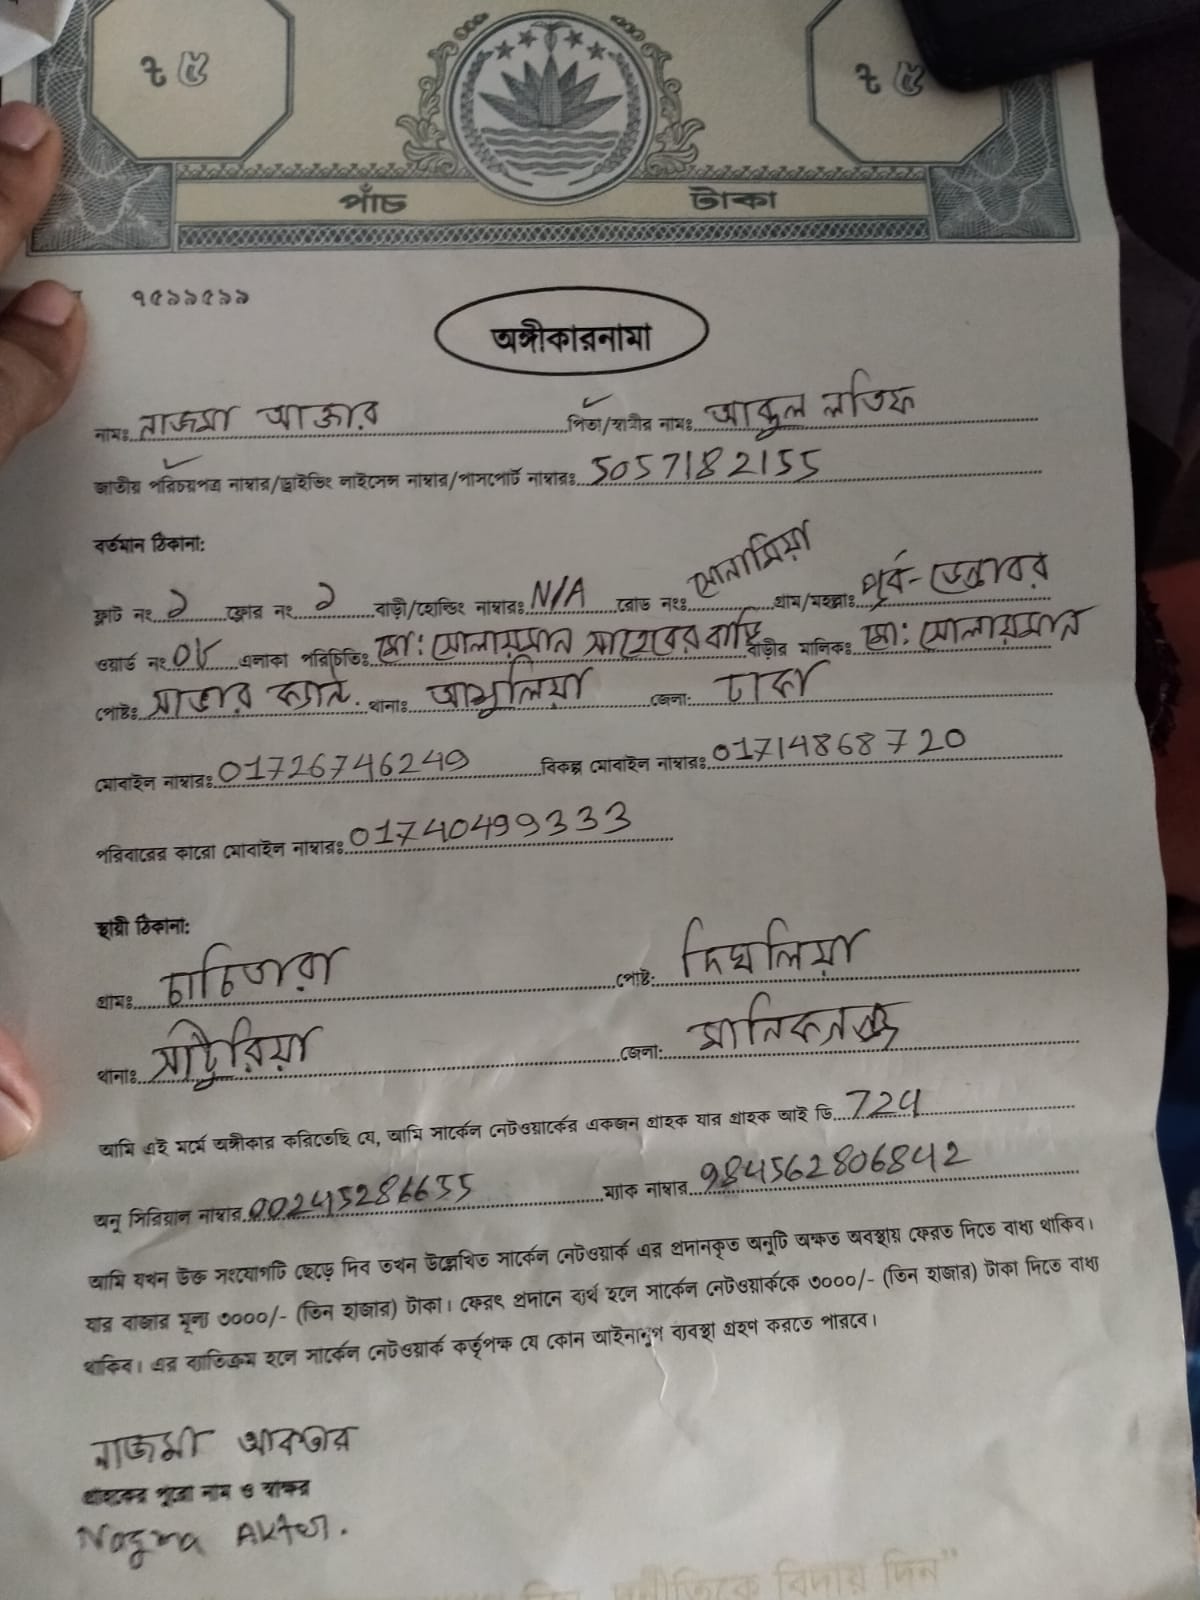 ৳ ৫ ৳ ৫
পাঁচ টাকা
৭৫৯৯৫৯৯
অঙ্গীকারনামা
নামঃ নাজমা আক্তার পিতা/স্বামীর নামঃ আব্দুল লতিফ
জাতীয় পরিচয়পত্র নাম্বার/ড্রাইভিং লাইসেন্স নাম্বার/পাসপোর্ট নাম্বারঃ 5057182155
বর্তমান ঠিকানা:
ফ্লাট নং ১ ফ্লোর নং ১ বাড়ী/হোল্ডিং নাম্বারঃ N/A রোড নংঃ সোনামিয়া গ্রাম/মহল্লাঃ পূর্ব-ডেন্ডাবর
ওয়ার্ড নং 08 এলাকা পরিচিতিঃ মো: সোলায়মান সাহেবের বাড়ি বাড়ীর মালিকঃ মো: সোলায়মান
পোষ্টঃ সাভার ক্যান্ট. থানাঃ আশুলিয়া জেলা: ঢাকা
মোবাইল নাম্বারঃ 01726746249 বিকল্প মোবাইল নাম্বারঃ 01714868720
পরিবারের কারো মোবাইল নাম্বারঃ 01740499333
স্থায়ী ঠিকানা:
গ্রামঃ চাচিতারা পোষ্ট: দিঘলিয়া
থানাঃ সাটুরিয়া জেলা: মানিকগঞ্জ
আমি এই মর্মে অঙ্গীকার করিতেছি যে, আমি সার্কেল নেটওয়ার্কের একজন গ্রাহক যার গ্রাহক আই ডি 724
অনু সিরিয়াল নাম্বার 00245286655 ম্যাক নাম্বার 984562806842
আমি যখন উক্ত সংযোগটি ছেড়ে দিব তখন উল্লেখিত সার্কেল নেটওয়ার্ক এর প্রদানকৃত অনুটি অক্ষত অবস্থায় ফেরত দিতে বাধ্য থাকিব।
যার বাজার মূল্য ৩০০০/- (তিন হাজার) টাকা। ফেরৎ প্রদানে ব্যর্থ হলে সার্কেল নেটওয়ার্ককে ৩০০০/- (তিন হাজার) টাকা দিতে বাধ্য
থাকিব। এর ব্যতিক্রম হলে সার্কেল নেটওয়ার্ক কর্তৃপক্ষ যে কোন আইনানুগ ব্যবস্থা গ্রহণ করতে পারবে।
নাজমা আকতার
গ্রাহকের পুরো নাম ও স্বাক্ষর
Nazma Akter.
দুর্নীতিকে বিদায় দিন"